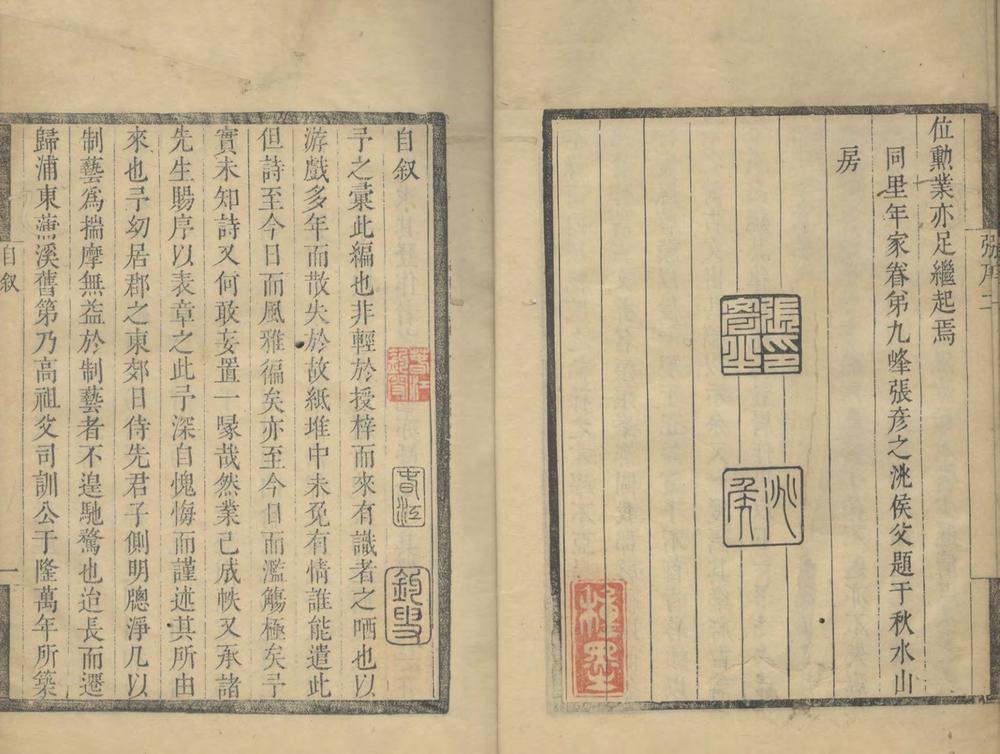 位勳業亦足繼起焉
同里年家眷第九峰張彥之洮侯父題于秋水山
房
洮侯
自叙
予之彙此編也非輕於授梓而來有識者之哂也以
游戲多年而散失於故紙堆中未免有情誰能遣此
但詩至今日而風雅徧矣亦至今日而濫觴極矣予
實未知詩又何敢妄置一喙哉然業已成帙又承諸
先生賜序以表章之此予深自愧悔而謹述其所由
來也予幼居郡之東郊日侍先君子側明牕淨几以
制藝為揣摩無益於制藝者不遑馳騖也迨長而遷
歸浦東蕭溪舊第乃高祖父司訓公于隆萬年所築
春江
釣叟
自叙
一